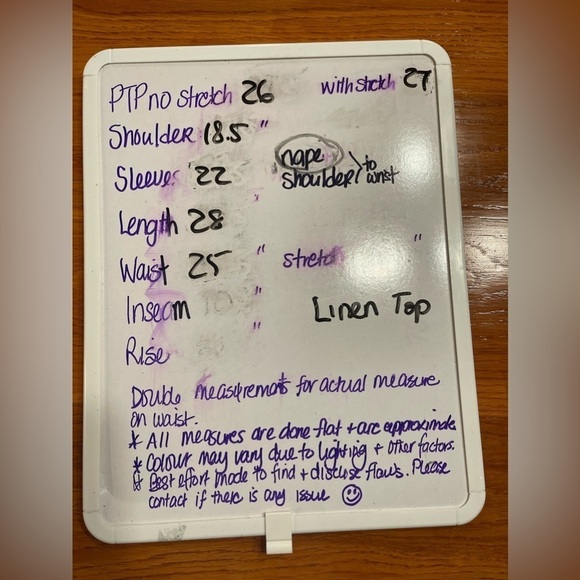 PTP no stretch 26 with stretch 27
Shoulder 18.5 "
Sleeves 22 nape shoulder } to wrist
Length 28 "
Waist 25 " stretch "
Inseam " Linen Top
Rise "
Double measurements for actual measure
on waist.
* All measures are done flat + are approximate
* Colour may vary due to lighting + other factors.
* Best effort made to find + disclose flaws. Please
contact if there is any issue ☺